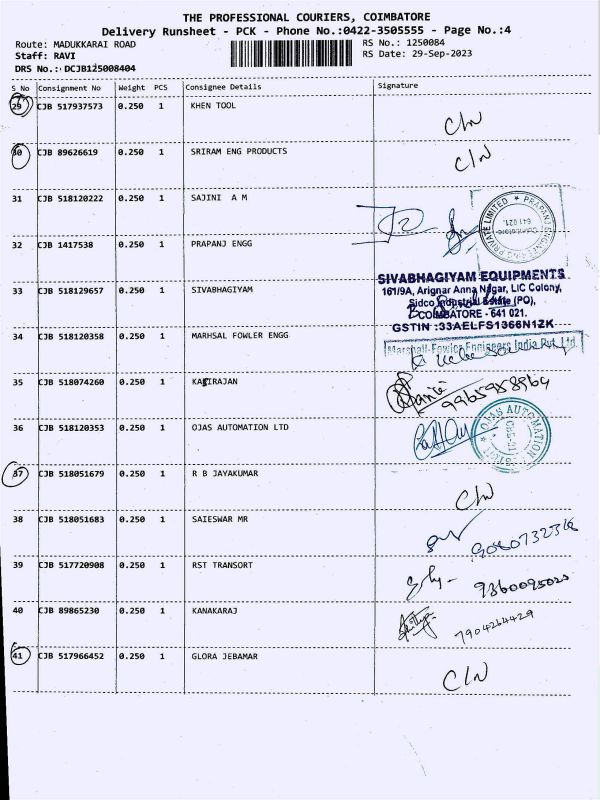 THE PROFESSIONAL COURIERS, COIMBATORE
Delivery Runsheet - PCK - Phone No.:0422-3505555 - Page No.:4
Route: MADUKKARAI ROAD
RS No.: 1250084
Staff: RAVI
RS Date: 29-Sep-2023
DRS No.: DCJB125008404
S No Consignment No Weight PCS Consignee Details Signature
29 CJB 517937573 0.250 1 KHEN TOOL
C/N
30 CJB 89626619 0.250 1 SRIRAM ENG PRODUCTS
C/N
31 CJB 518120222 0.250 1 SAJINI A M
32 CJB 1417538 0.250 1 PRAPANJ ENGG
PRAPANJ ENGINEERING PRIVATE LIMITED
Coimbatore
641 021.
33 CJB 518129657 0.250 1 SIVABHAGIYAM
SIVABHAGIYAM EQUIPMENTS
161/9A, Arignar Anna Nagar, LIC Colony,
Sidco Industrial Estate (PO),
COIMBATORE - 641 021.
GSTIN :33AELFS1366N1ZK
34 CJB 518120358 0.250 1 MARHSAL FOWLER ENGG
Marshall-Fowler Engineers India Pvt. Ltd.
35 CJB 518074260 0.250 1 KATIRAJAN
9965958964
36 CJB 518120353 0.250 1 OJAS AUTOMATION LTD
OJAS AUTOMATION
37 CJB 518051679 0.250 1 R B JAYAKUMAR
C/N
38 CJB 518051683 0.250 1 SAIESWAR MR
39 CJB 517720908 0.250 1 RST TRANSORT
40 CJB 89865230 0.250 1 KANAKARAJ
7904264429
41 CJB 517966452 0.250 1 GLORA JEBAMAR
C/N